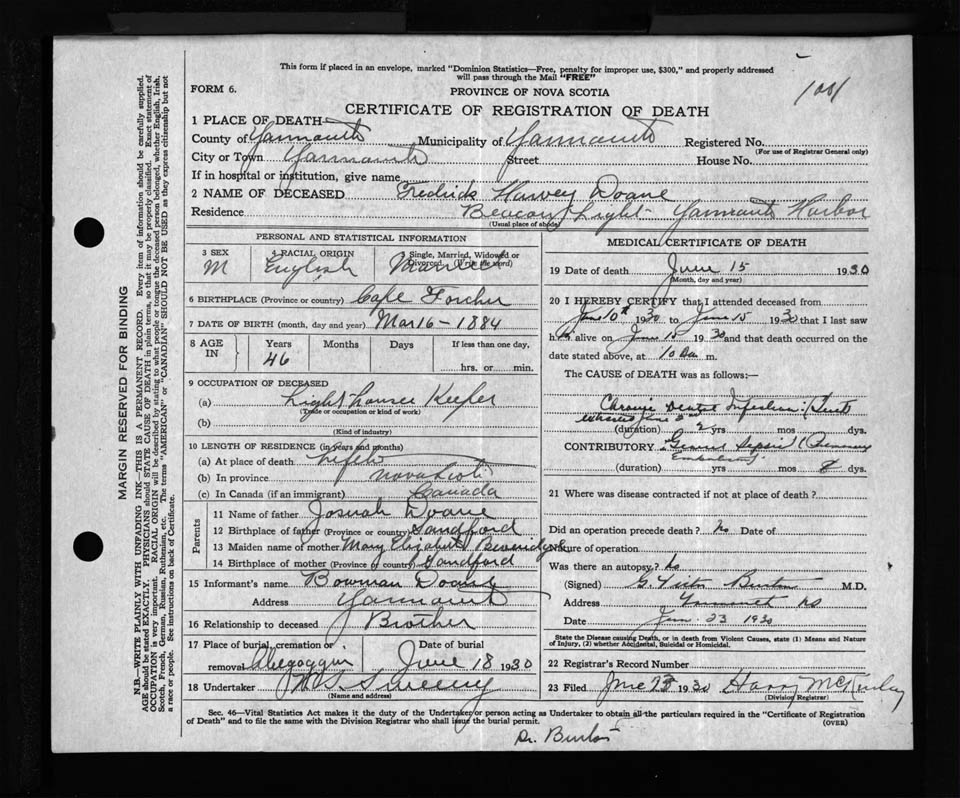 This form if placed in an envelope, marked "Dominion Statistics—Free, penalty for improper use, $300," and properly addressed
will pass through the Mail "FREE"
1001
FORM 6.
PROVINCE OF NOVA SCOTIA
CERTIFICATE OF REGISTRATION OF DEATH
1 PLACE OF DEATH
County of Yarmouth Municipality of Yarmouth Registered No.
(For use of Registrar General only)
City or Town Yarmouth Street House No.
If in hospital or institution, give name
2 NAME OF DECEASED Fredrick Harvey Doane
Residence Beacon Light Yarmouth Harbor
(Usual place of abode)
PERSONAL AND STATISTICAL INFORMATION
3 SEX 4 RACIAL ORIGIN Single, Married, Widowed or
Divorced (Write the word)
M English Married
6 BIRTHPLACE (Province or country) Cape Forchu
7 DATE OF BIRTH (month, day and year) Mar 16 - 1884
8 AGE IN Years Months Days If less than one day,
46 hrs. or min.
9 OCCUPATION OF DECEASED
(a) Light house Keeper
(Trade or occupation or kind of work)
(b)
(Kind of industry)
10 LENGTH OF RESIDENCE (in years and months)
(a) At place of death Life
(b) In province Nova Scotia
(c) In Canada (if an immigrant) Canada
Parents
11 Name of father Josuah Doane
12 Birthplace of father (Province or country) Sandford
13 Maiden name of mother Mary Elizabeth
14 Birthplace of mother (Province or country) Sandford
15 Informant's name Bowman Doane
Address Yarmouth
16 Relationship to deceased Brother
17 Place of burial, cremation or Date of burial
removal June 18 1930
18 Undertaker Sweeny
(Name and address)
MEDICAL CERTIFICATE OF DEATH
19 Date of death June 15 1930
(Month, day and year)
20 I HEREBY CERTIFY that I attended deceased from
June 10th 1930 to June 15 1930 that I last saw
h im alive on June 15 1930 and that death occurred on the
date stated above, at 10 am m.
The CAUSE of DEATH was as follows:—
Chronic Dental Infection (Teeth
extracted June
(duration) 2 yrs mos dys.
CONTRIBUTORY General Sepsis (Pulmonary
Embolism)
(duration) yrs mos 8 dys.
21 Where was disease contracted if not at place of death?
Did an operation precede death? No Date of
Nature of operation
Was there an autopsy? No
(Signed) G. Victor Burton M.D.
Address Yarmouth NS
Date 23 1930
State the Disease causing Death, or in death from Violent Causes, state (1) Means and Nature
of Injury, (2) whether Accidental, Suicidal or Homicidal.
22 Registrar's Record Number
23 Filed June 1930 Harry McKinlay
(Division Registrar)
Sec. 46—Vital Statistics Act makes it the duty of the Undertaker or person acting as Undertaker to obtain all the particulars required in the "Certificate of Registration
of Death" and to file the same with the Division Registrar who shall issue the burial permit. (OVER)
Dr. Burton
MARGIN RESERVED FOR BINDING
N.B.—WRITE PLAINLY WITH UNFADING INK—THIS IS A PERMANENT RECORD. Every item of information should be carefully supplied.
AGE should be stated EXACTLY. PHYSICIANS should STATE CAUSE OF DEATH in plain terms, so that it may be properly classified. Exact statement of
OCCUPATION is very important. RACIAL ORIGIN will be described by stating to what people or tongue the deceased person belonged, whether English, Irish,
Scotch, French, German, Russian, Ruthenian, etc. The terms "AMERICAN" or "CANADIAN" SHOULD NOT BE USED as they express citizenship but not
a race or people. See instructions on back of Certificate.